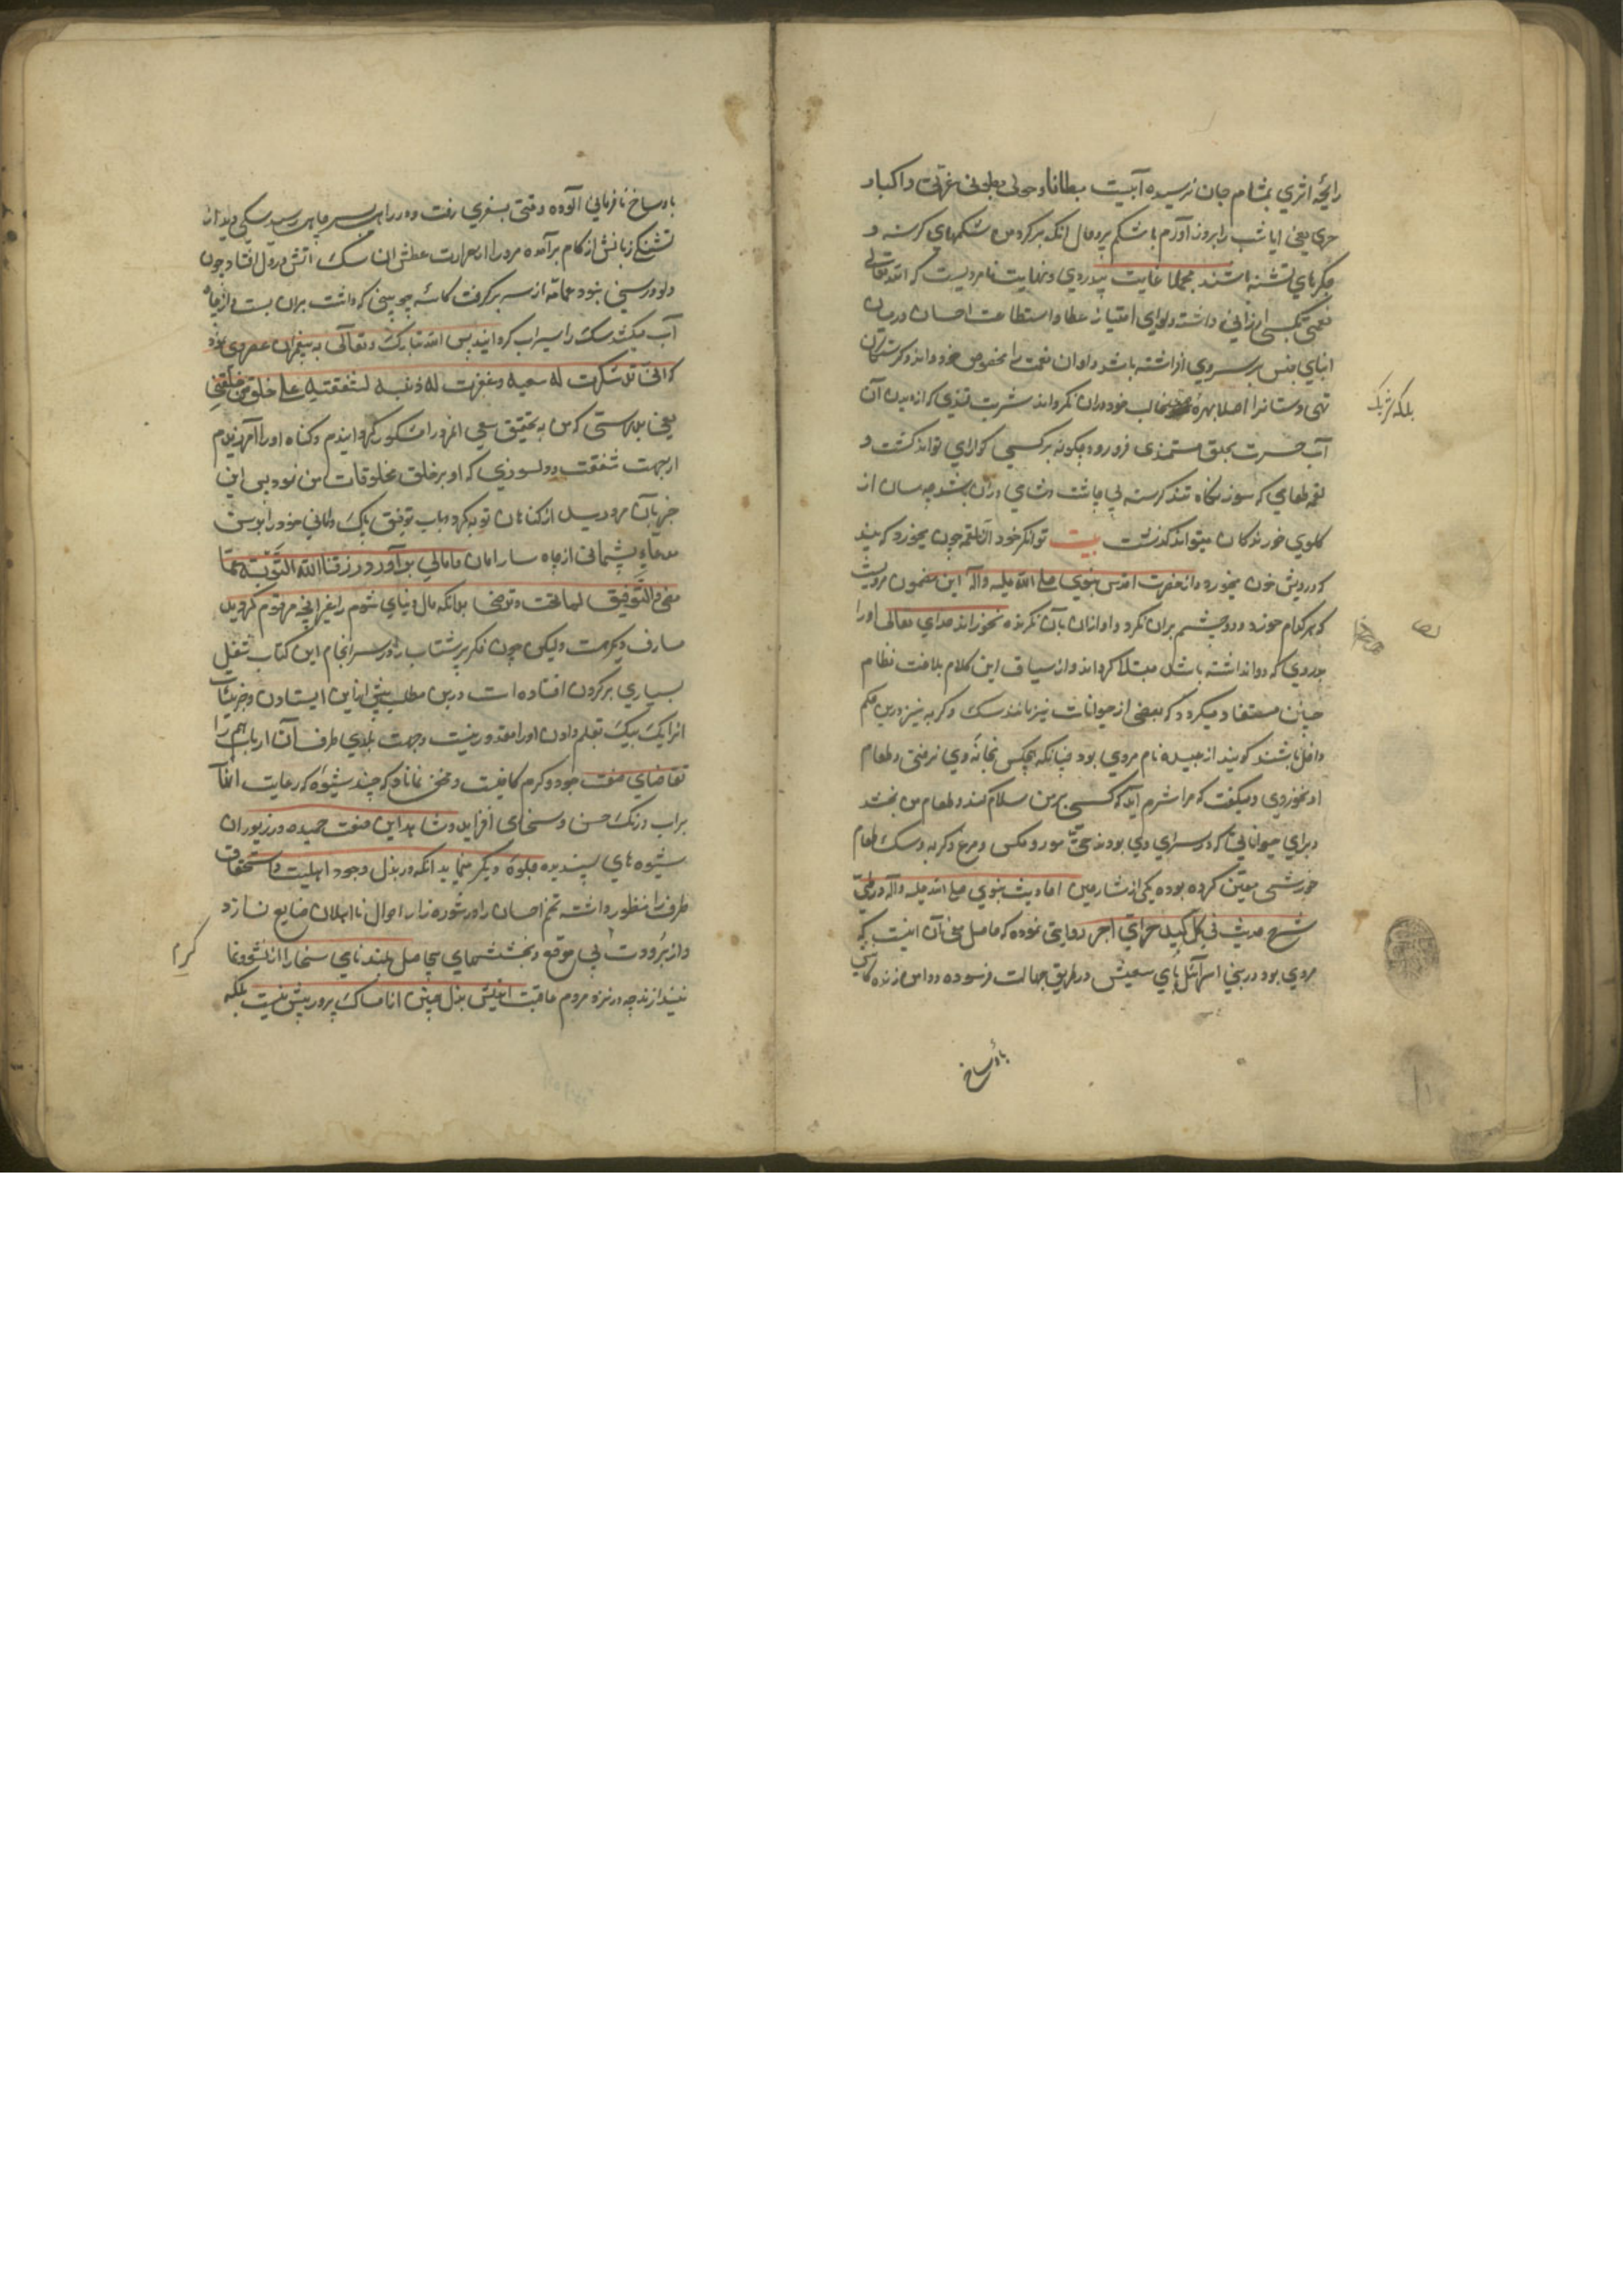 رایحهٔ اثری بمشام جان نرسیده آبیت مبطانا و حولی بطون غرثی و اکباد
حری یعنی ایا شب را بروز آورم با شکم پر و حال انکه بر کرد من شکمهای کرسنه و
جکرهای تشنه باشند مجملا غایت بیدردی و نهایت نامردیست که الله تعالی
نعمتی بکسی ارزانی داشته و لوای امتیاز عطا و استطاعت احسان در میان
ابنای جنس بر سر وی افراشته باشد و او ان نعمت را مخصوص خود داند و کرسنکان
تهی دستانرا اصلا بهره خود دران نکرداند شربت قندی که از دیدن آن
آب حسرت بحلق مستمندی فرو رود چکونه بر کسی کوارای تواند کشت و
لقمه طعامی که سوز نکاه تند کرسنه بی چاشت و شامی دران باشد چه سان از
کلوی خورندکان میتواند کذشت بیت توانکر خود آن لقمه چون میخورد که بیند
که درویش خون میخورد و از حضرت اقدس نبوی صلی الله علیه و آله این مضمون مرویست
که هر که طعام خورد و دو چشم بران نکرد و او ازان بآن نکرنده نخوراند خدای تعالی او را
بدردی که دوا نداشته باشد مبتلا کرداند و از سیاق این کلام بلاغت نظام
چنین مستفاد میکردد که بعضی از حیوانات نیز مانند سک و کربه نیز درین حکم
داخل باشند کویند از جبیله نام مردی بود چنانکه هیچکس بخانهٔ وی نرفتی و طعام
او نخوردی و میکفت که مرا شرم آید که کسی بر من سلام کند و طعام من نخشد
و برای حیواناتی که در سرای وی بودند حتی مور و مکس و مرغ و کربه و سک طعام
خورشی معین کرده بوده یکی از شارحین احادیث نبوی صلی الله علیه و آله در طی
شرح حدیث فی کل کبد حرای اجر روایتی نموده که حاصل معنی آن اینست که
مردی بود در بنی اسرآئیل پای سعیش در طریق جهالت فرسوده و دامن زندکانیش
بلکه شریک
باوساخ
باوساخ نافرمانی آلوده وقتی بسفری رفت و در راه بر سر چاهی رسید سکی دید از
تشنکی زبانش از کام برآمده مرد را از حرارت عطش ان سک اتش در دل افتاد چون
دلو و رسنی نبود عمامه از سر برکرفت کاسهٔ چوبینی که داشت بران بست و از چاه
آب میکشید سک را سیراب کردانید پس الله تبارک و تعالی به پیغمبران عصر وحی نمود
که انی قد شکرت له سعیه و غفرت له ذنبه لشفقتیه علی خلق من خلقی
یعنی بدرستی که من به تحقیق سعی انمرد را مشکور کردانیدم و کناه او را آمرزیدم
از جهت شفقت و دلسوزی که او بر خلق مخلوقات من نمود پس این
خبر بآن مرد رسید از کناهان توبه کرد و باب توفیق پاک
پشیمانی از چاه بر آورد و رزقنا الله التوبة عما
مضی و التوفیق لما تحت و ترضی بدانکه مال دنیای شوم را بغیر انچه مرقوم کردید
مصارف دیکر هست ولیکن چون فکر پر شتاب را در سر انجام این کتاب شغل
بسیاری بر کردن افتاده است درین مطلب پیش ازین ایستادن و جزئیات
انرا یک بیک بقلم دادن او را مقدور نیست و جهت بلدی طرف آن ارباب همم را
تقاضای صفت جود و کرم کافیست و مخفی نماناد که چند شیوه که رعایت انها
بر اب و رنک حسن و سخای افزاید و شاهد این صفت حمیده در زیوران
شیوه های پسندیده جلوهٔ دیکر مینماید انکه در بذل وجود اهلیت و استحقاق
طرف را منظور داشته تخم احسان را در شوره زار احوال نااهلان ضایع نسازد
و از برودت بی موقع و بخششهای بیحاصل بلند نای سخا را از نشو و نما
نیندازند چه در نزد مردم عاقبت اندیش بذل چنین از امساک پرور بیش نیست بلکه
کرم